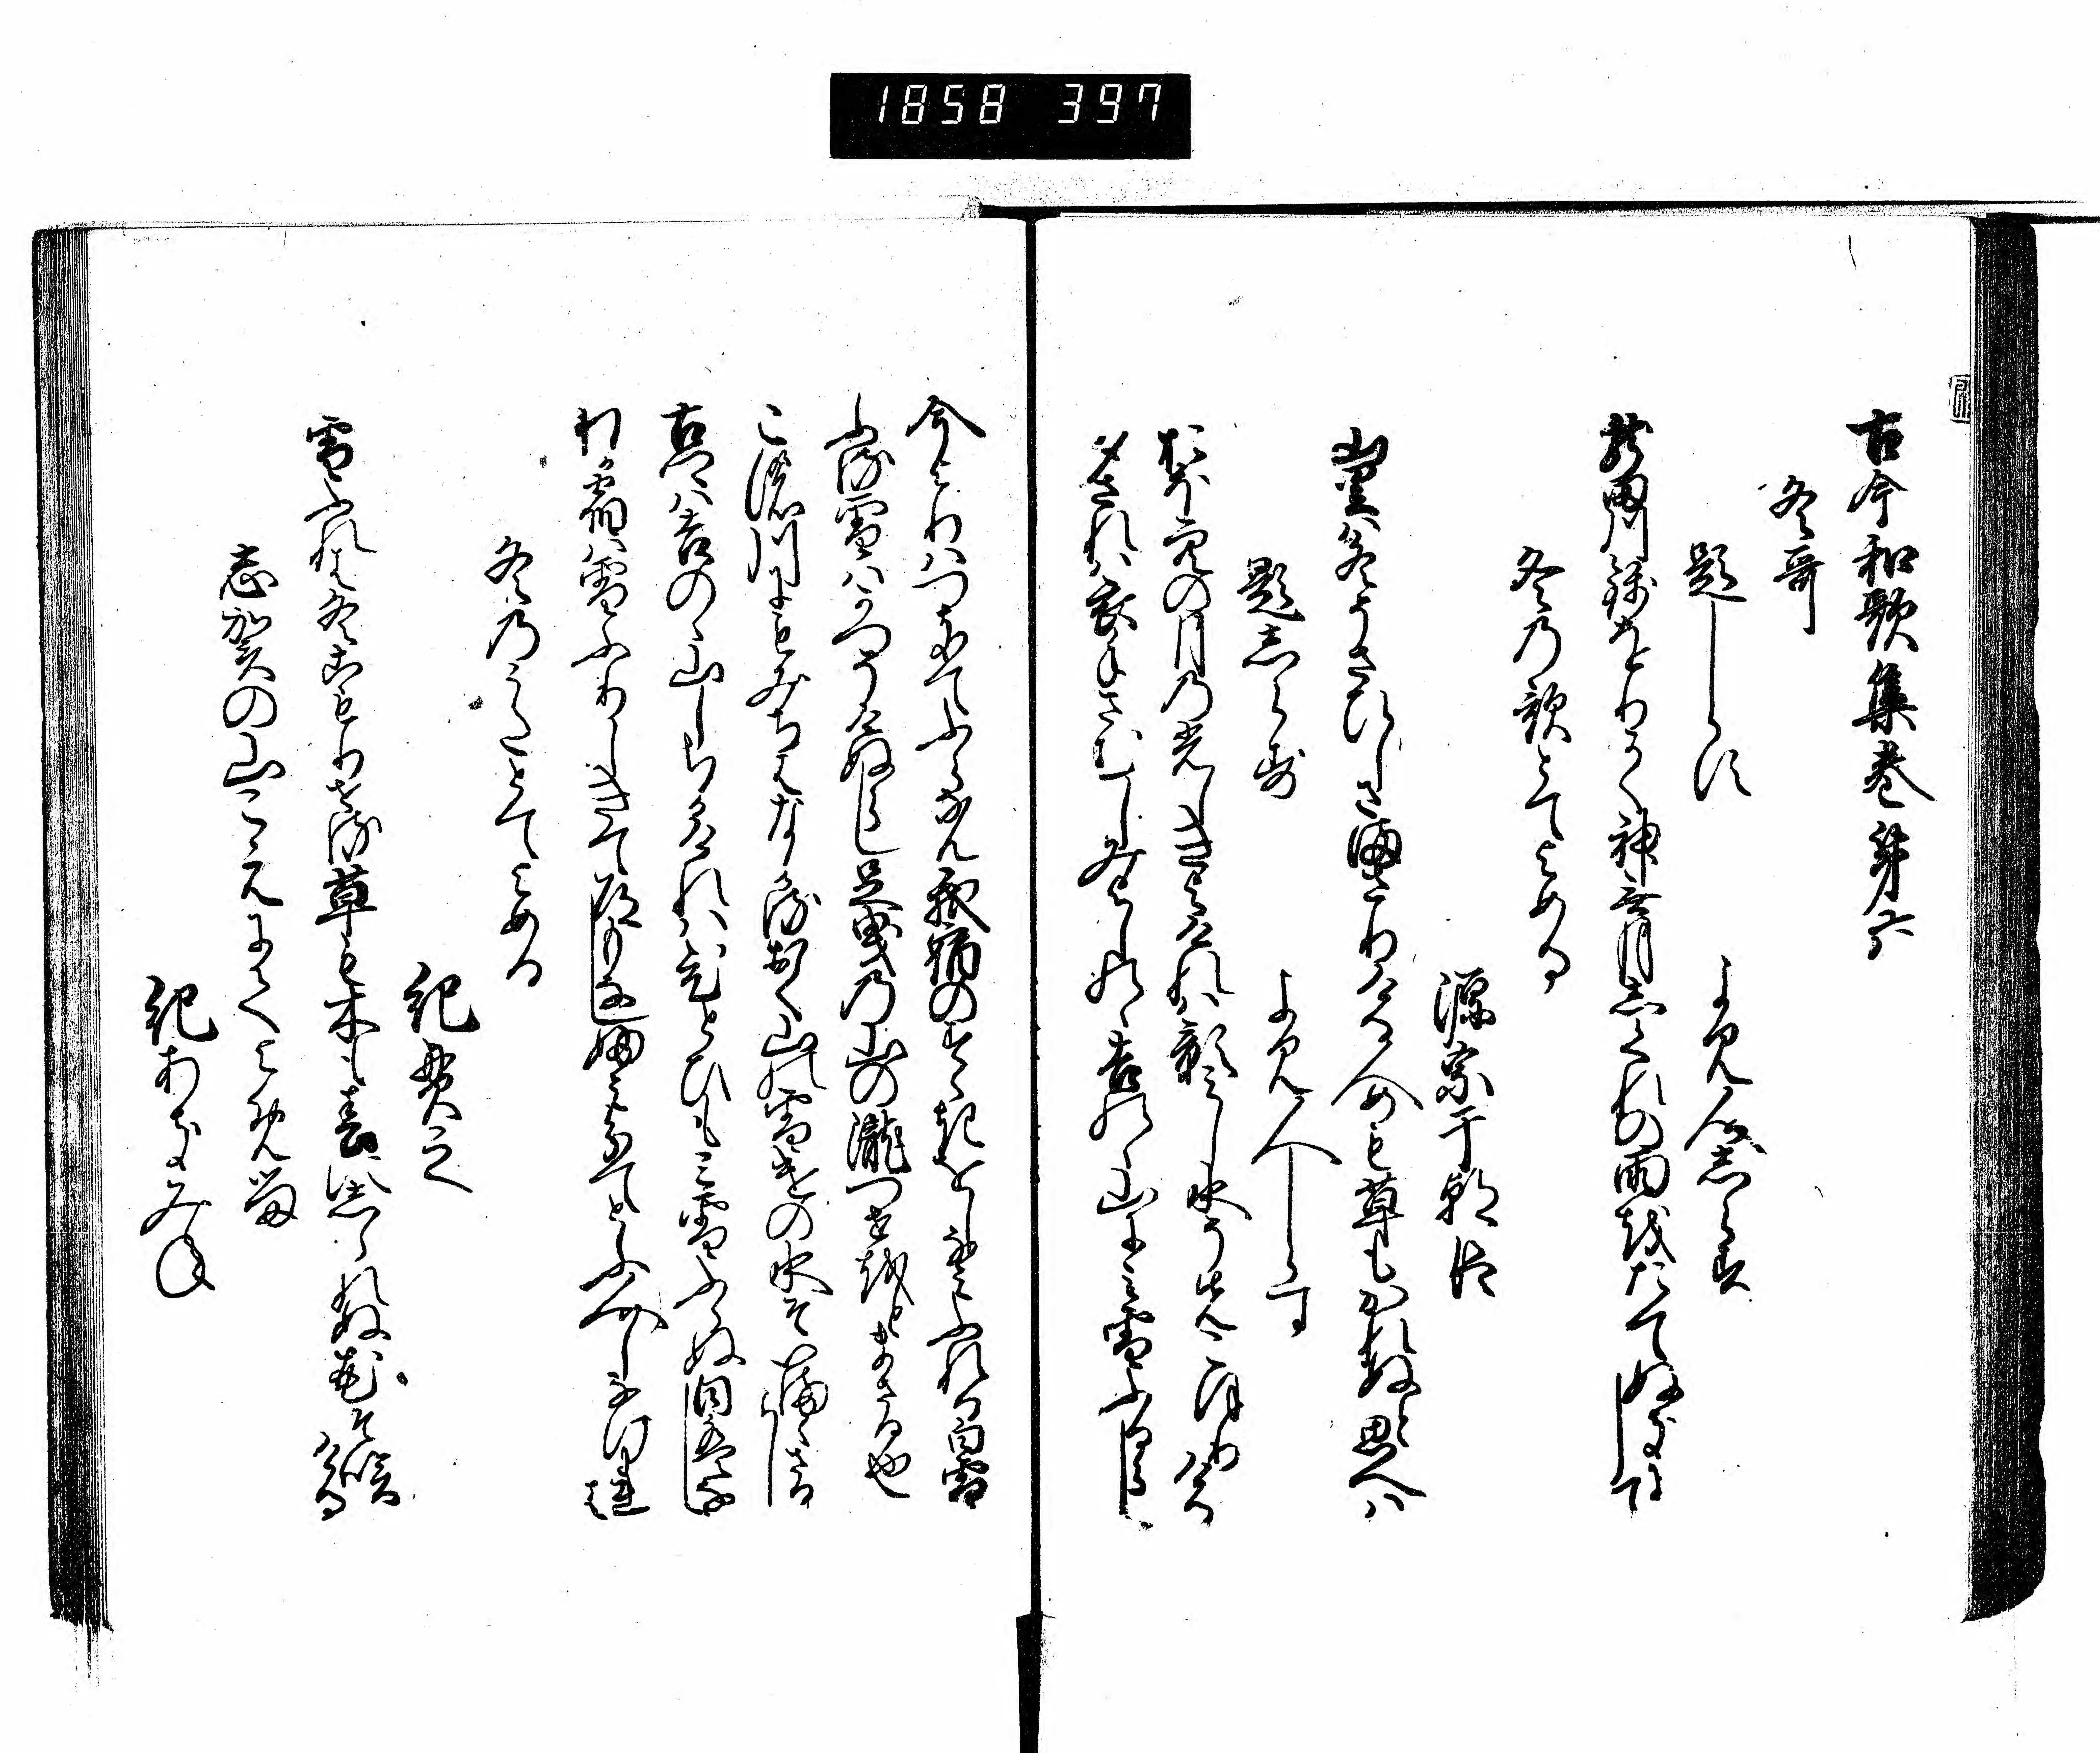 1858 397
古今和歌集巻第六
冬哥
題しらす
よみ人志らす
龍田川錦をりかく神無月志くれの雨をたてぬきにして
冬乃歌とてよめる
源宗于朝臣
山里は冬そさひしさ満さりける人めも草もかれぬと思へは
題志らす
よみ人しらす
おほ空の月乃光しきよけれは影みし水そ先こほりける
夕されは衣手さむしみよしのゝ吉野ゝ山にみ雪ふるらし
今よりはつきてふらなん我宿のすゝきをしなみふれる白雪
ふる雪はかつそけぬらし足曳乃山の瀧つせ音まさる也
この川にもみちはなかる奥山の雪けの水そ今まさるらし
古郷は吉野ゝ山しちかけれは一日もみ雪ふらぬ日はなし
わか宿は雪ふりしきて道もなし踏わけてとふ人しなけれは
冬乃うたとてよめる
紀貫之
雪ふれは冬こもりせる草も木も春に志られぬ花そ咲ける
志賀の山こえにてよめる
紀あきみね